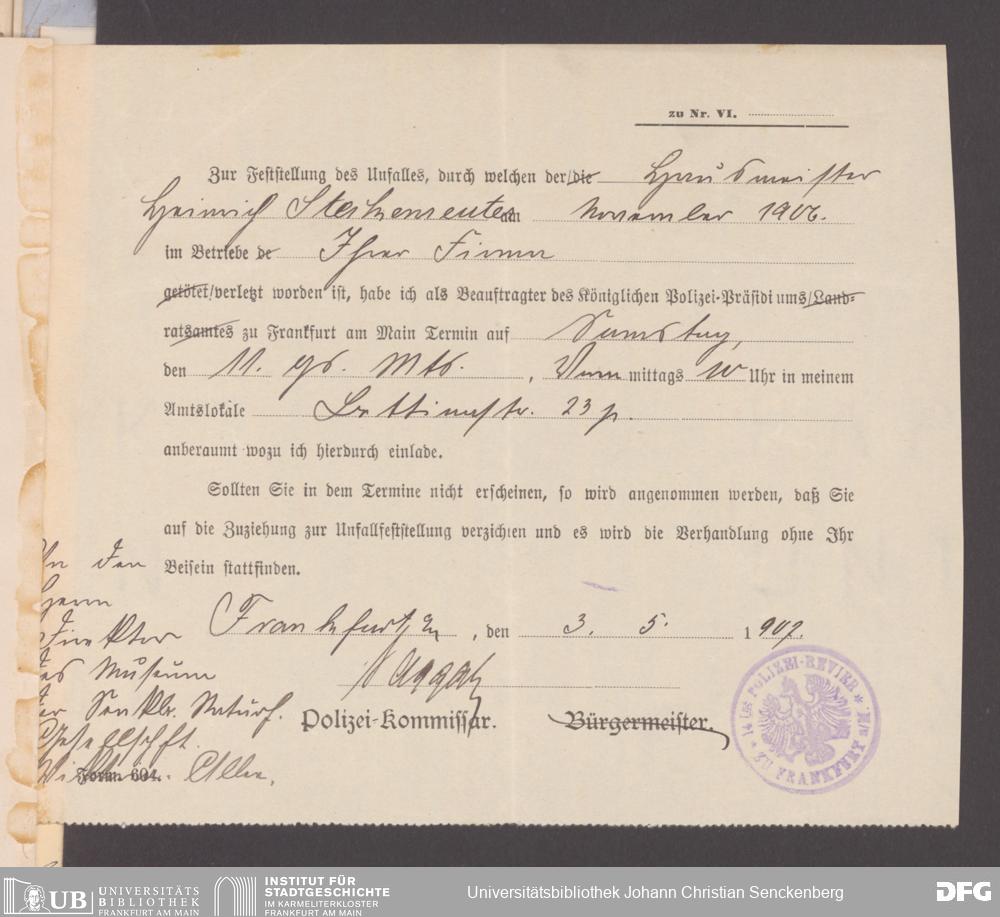 zu Nr. VI.
Zur Feststellung des Unfalles, durch welchen der/die Hausmeister
Heinrich am November 1906.
im Betriebe de Ihrer Firma
getötet/verletzt worden ist, habe ich als Beauftragter des Königlichen Polizei-Präsidiums/Land-
ratsamtes zu Frankfurt am Main Termin auf Samstag,
den 11. ds. Mts. , Vormmittags 10 Uhr in meinem
Amtslokale Bettinastr. 23 p.
anberaumt wozu ich hierdurch einlade.
Sollten Sie in dem Termine nicht erscheinen, so wird angenommen werden, daß Sie
auf die Zuziehung zur Unfallfeststellung verzichten und es wird die Verhandlung ohne Ihr
Beisein stattfinden.
Frankfurt , den 3. 5. 1907.
Polizei-Kommissar. Bürgermeister.
An den
Herrn
Direktor
des Museum
der Senkbr. Naturf.
Gesellschft.
Allee.
Form. 604.
14tes POLIZEI-REVIER * ZU FRANKFURT A/M *
UB UNIVERSITÄTS
BIBLIOTHEK
FRANKFURT AM MAIN
INSTITUT FÜR
STADTGESCHICHTE
IM KARMELITERKLOSTER
FRANKFURT AM MAIN
Universitätsbibliothek Johann Christian Senckenberg
DFG